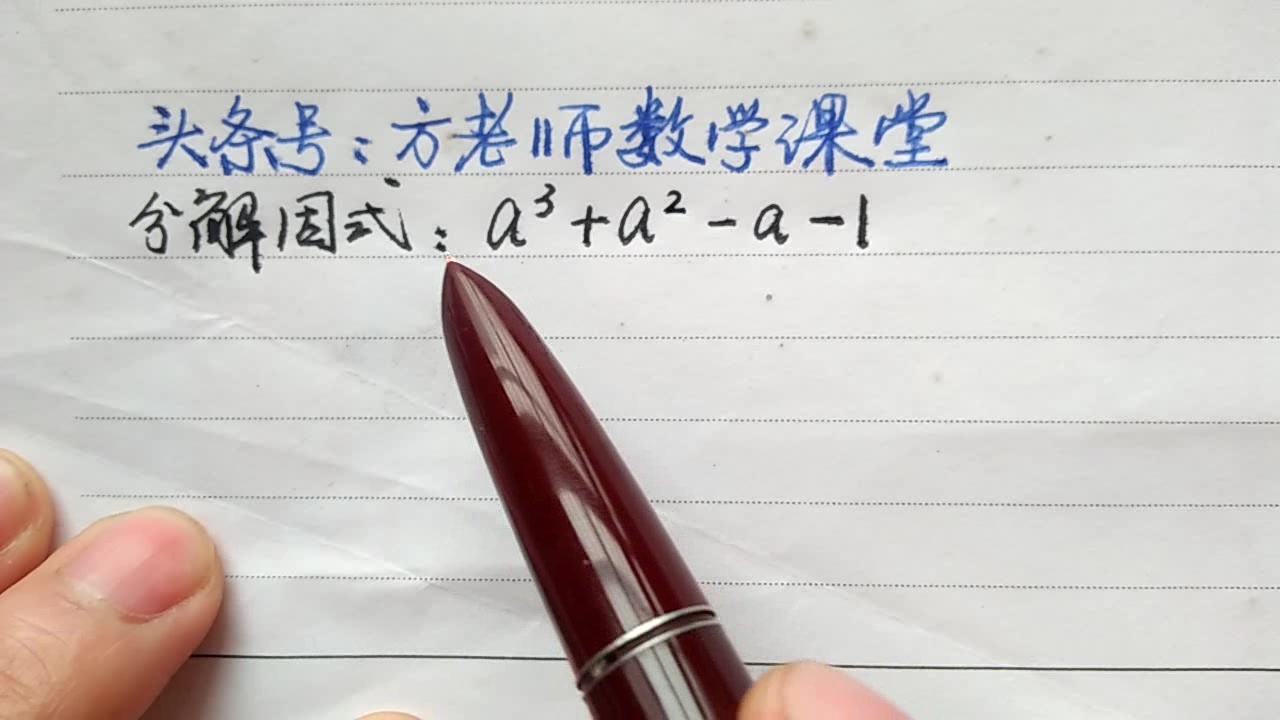 头条号：方老师数学课堂
分解因式：a³+a²-a-1